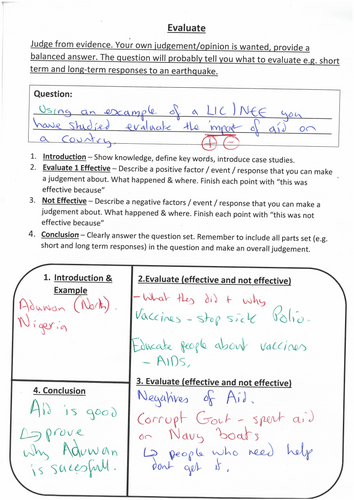 Evaluate
Judge from evidence. Your own judgement/opinion is wanted, provide a
balanced answer. The question will probably tell you what to evaluate e.g. short
term and long-term responses to an earthquake.
Question:
Using an example of a LIC/NEE you
have studied evaluate the impact of aid on
a country.
+ -
1. Introduction – Show knowledge, define key words, introduce case studies.
2. Evaluate 1 Effective – Describe a positive factor / event / response that you can make
a judgement about. What happened & where. Finish each point with “this was
effective because”
3. Not Effective – Describe a negative factors / event / response that you can make a
judgement about. What happened & where. Finish each point with “this was not
effective because”
4. Conclusion – Clearly answer the question set. Remember to include all parts set (e.g.
short and long term responses) in the question and make an overall judgement.
1. Introduction &
Example
Aduwan (North).
Nigeria
2.Evaluate (effective and not effective)
- What they did + why
Vaccines - stop sick Polio.
Educate people about vaccines
- AIDS.
4. Conclusion
Aid is good
↳ prove
why Aduwan
is sucessfull.
3. Evaluate (effective and not effective)
Negatives of Aid.
Corrupt Govt - spent aid
on Navy boats
↳ people who need help
dont get it.